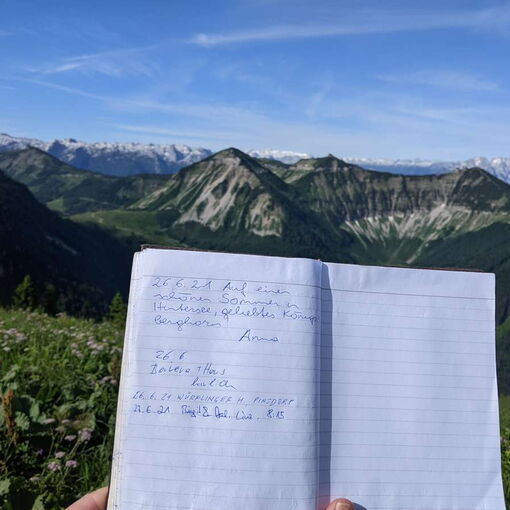 26.6.21 Auf einen
schönen Sommer in
Hintersee, geliebtes Königs-
berghorn!
Anna
26.6
26.6.21 WÜRFLINGER H., PINSDORF
27.6.21 Birgit & Lina, 8:15